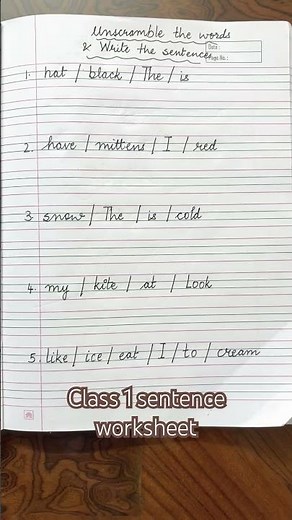 Unscramble the words
& Write the sentences
Date:
Page No.:
1. hat / black / The / is
2. have / mittens / I / red
3. snow / The / is / cold
4. my / kite / at / Look
5. like / ice / eat / I / to / cream
Class 1 sentence
worksheet